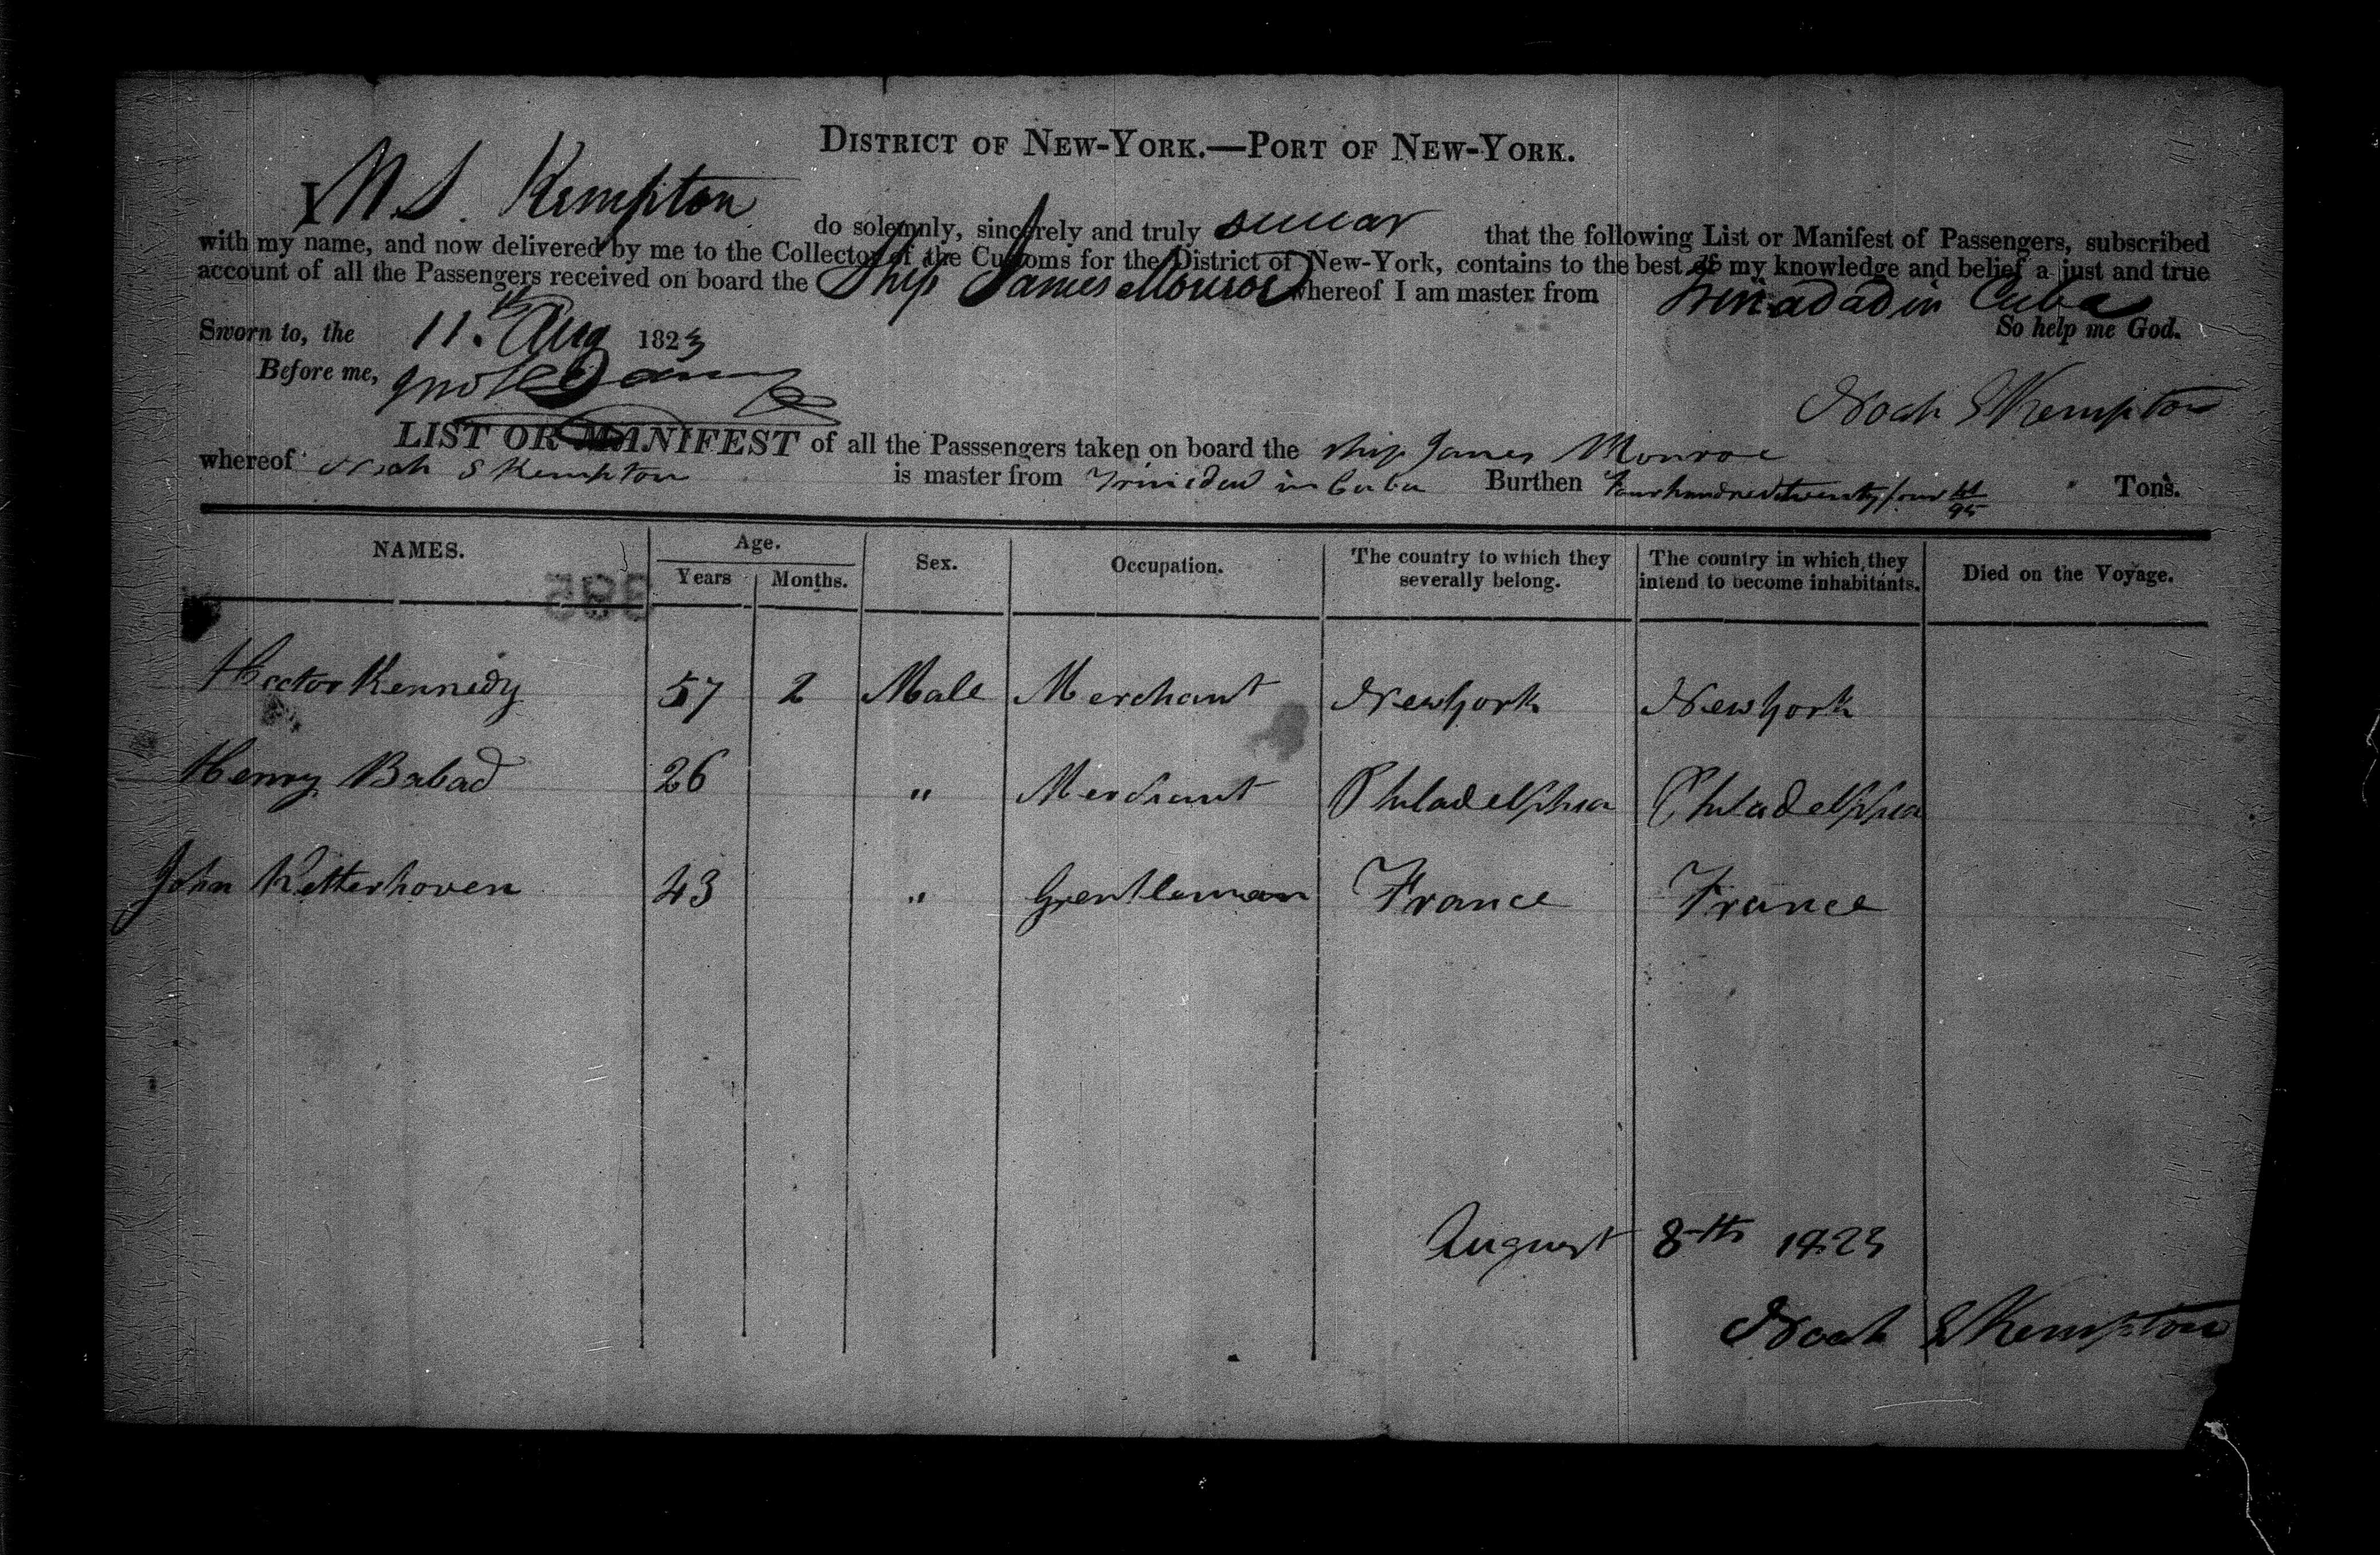 DISTRICT OF NEW-YORK.—PORT OF NEW-YORK.
I N. S. Kempton do solemnly, sincerely and truly swear that the following List or Manifest of Passengers, subscribed
with my name, and now delivered by me to the Collector of the Customs for the District of New-York, contains to the best of my knowledge and belief a just and true
account of all the Passengers received on board the Ship James Monroe whereof I am master from Trinadad in Cuba
So help me God.
Sworn to, the 11.th Aug 1823
Before me,
Noah S Kempton
LIST OR MANIFEST of all the Passsengers taken on board the ship James Monroe
whereof Noah S Kempton is master from Trinidad in Cuba Burthen Four hundred twenty four 95 Tons.
NAMES. Age. Sex. Occupation. The country to which they severally belong. The country in which they intend to become inhabitants. Died on the Voyage.
Years Months.
395
Hector Kennedy 57 2 Male Merchant New york New york
Henry Babad 26 " Merchant Philadelphia Philadelphia
John Ketterhoven 43 " Gentleman France France
August 8th 1823
Noah S Kempton